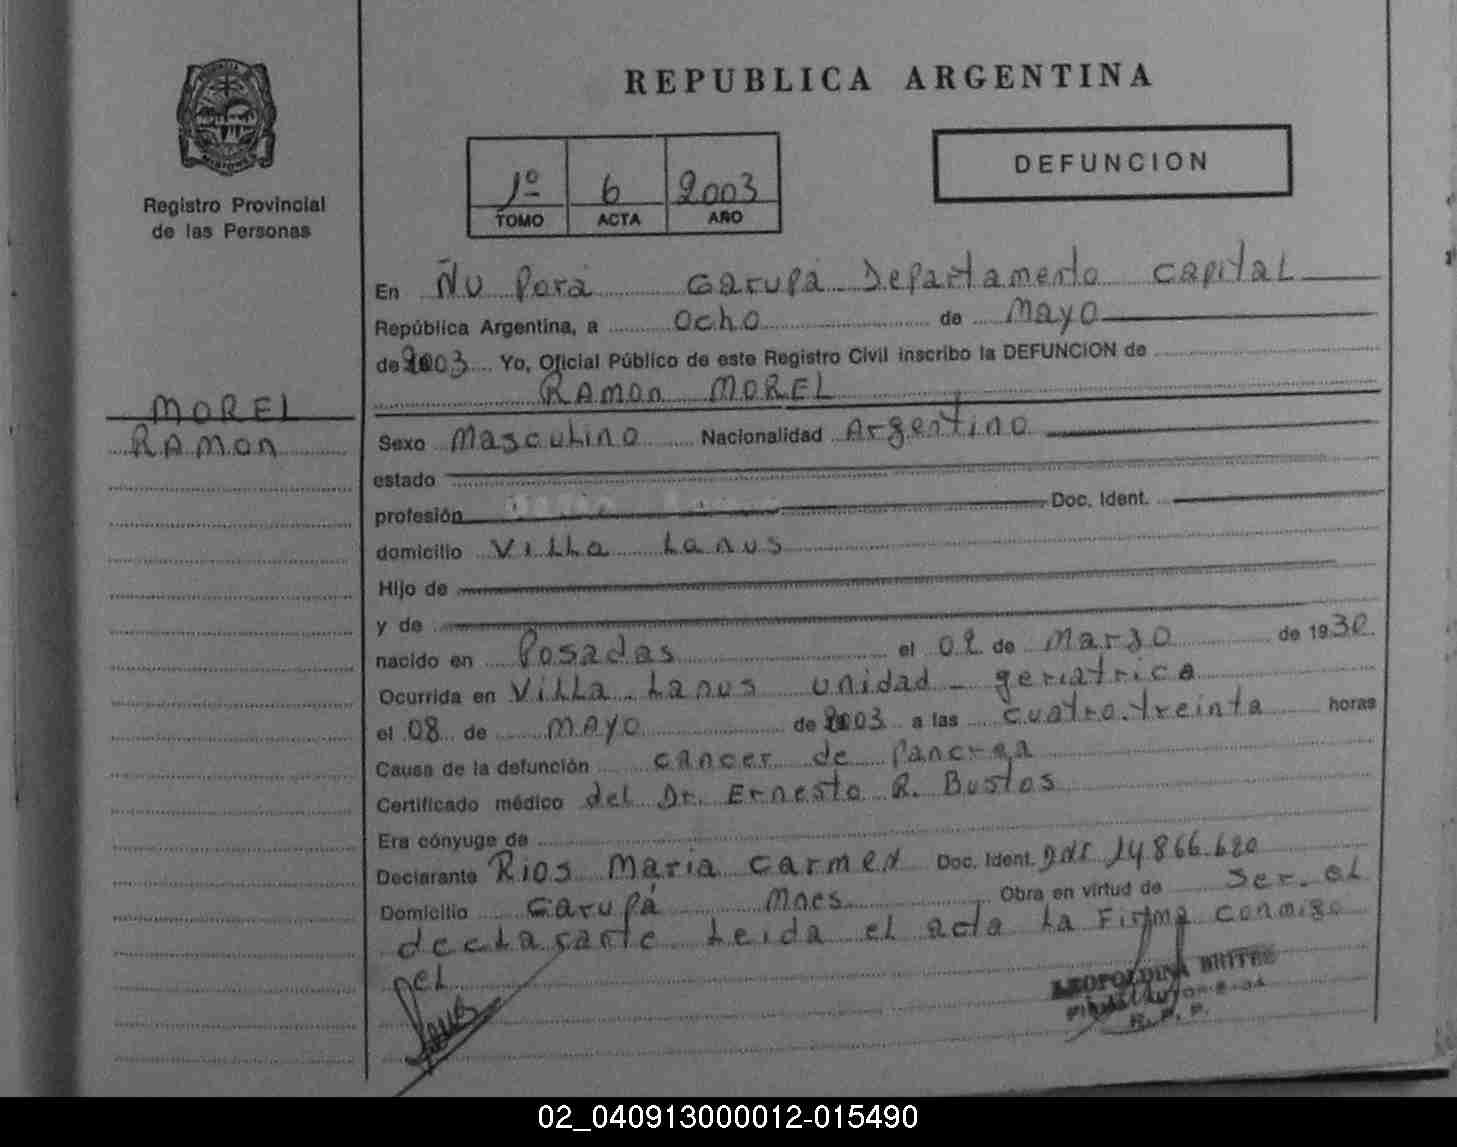 REPUBLICA ARGENTINA
Registro Provincial
de las Personas
1º 6 2003
TOMO ACTA AÑO
DEFUNCION
MOREL
RAMON
En Ñu Porá Garupá Departamento Capital
República Argentina, a Ocho de Mayo
de 2003 Yo, Oficial Público de este Registro Civil inscribo la DEFUNCION de
RAMON MOREL
Sexo Masculino Nacionalidad Argentino
estado
profesión Doc. Ident.
domicilio Villa Lanus
Hijo de
y de
nacido en Posadas el 02 de Marzo de 1930
Ocurrida en Villa Lanus unidad geriatrica
el 08 de mayo de 2003 a las cuatro treinta horas
Causa de la defunción cancer de Pancrea
Certificado médico del Dr. Ernesto R. Bustos
Era cónyuge de
Declarante Rios Maria Carmen Doc. Ident. DNI 14.866.620
Domicilio Garupá Mnes Obra en virtud de Ser el
declarante Leida el acta La Firma conmigo
LEOPOLDINA BRITEZ
R. P. P.
02_040913000012-015490